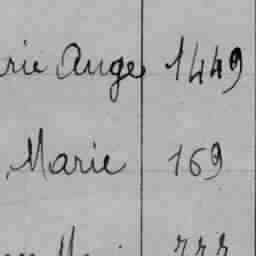 rie Ange 1449
Marie 169